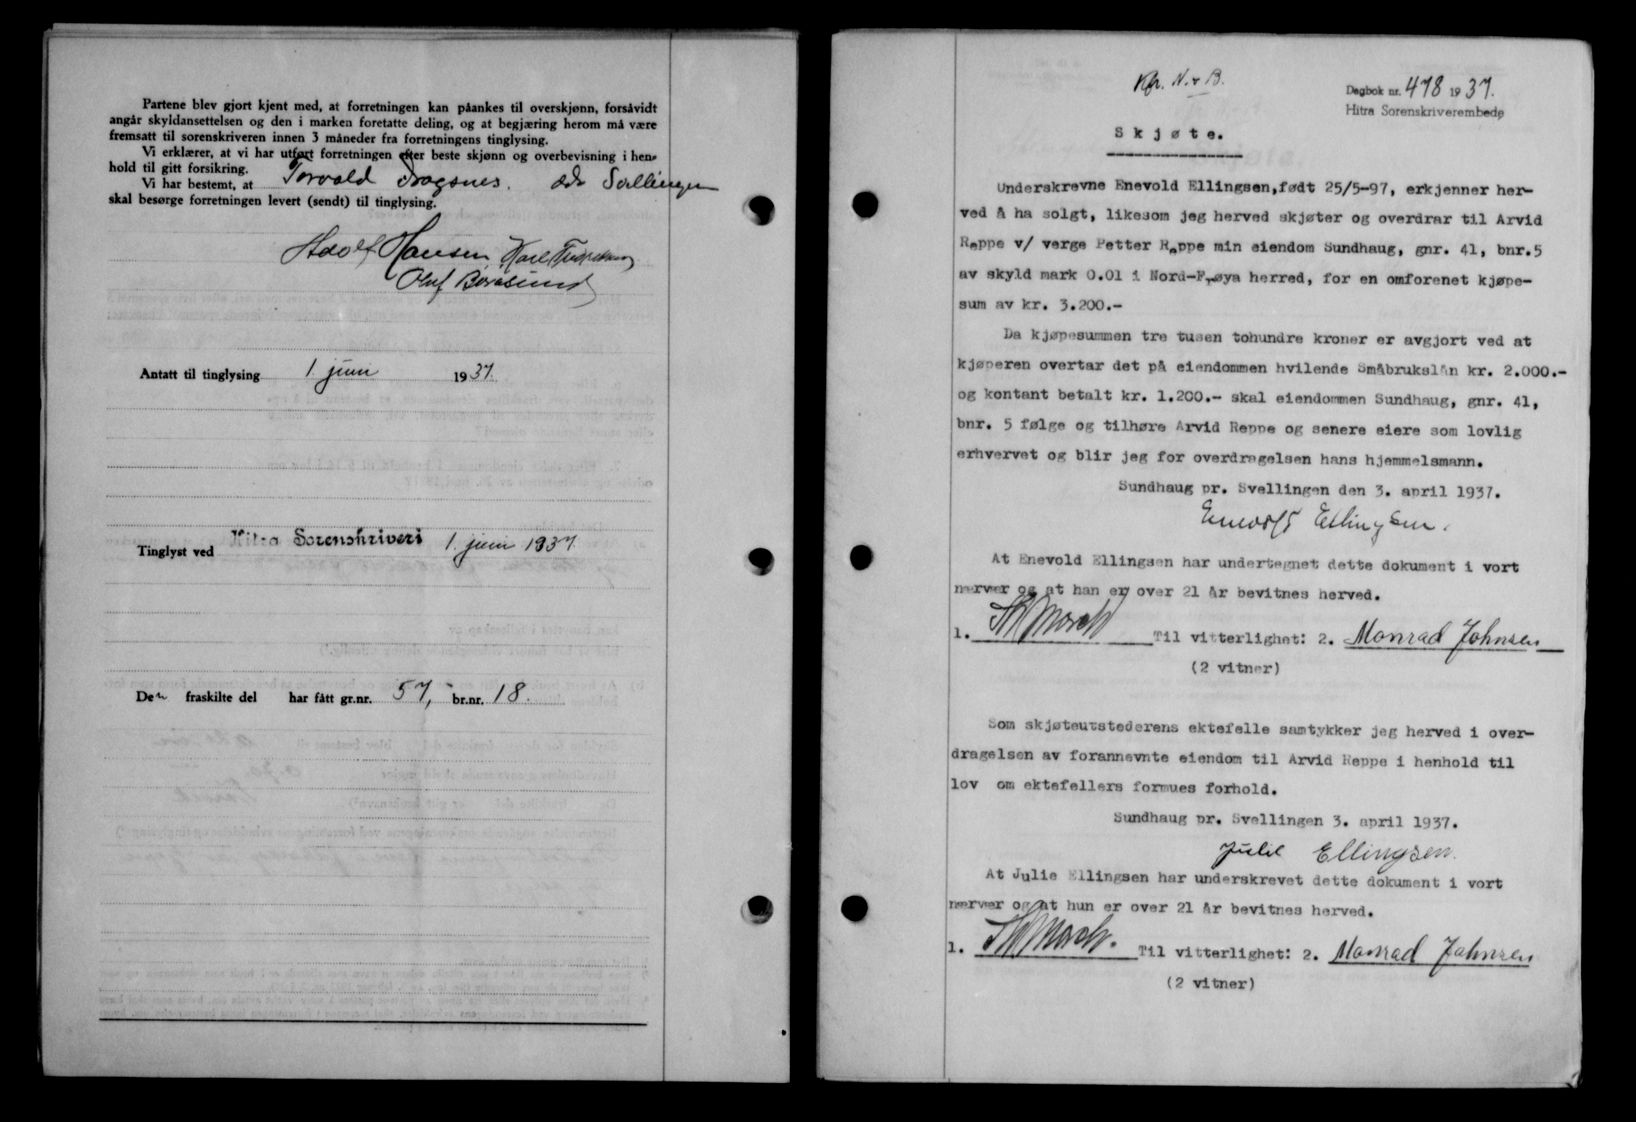 Partene blev gjort kjent med, at forretningen kan påankes til overskjønn, forsåvidt
angår skyldansettelsen og den i marken foretatte deling, og at begjæring herom må være
fremsatt til sorenskriveren innen 3 måneder fra forretningens tinglysing.
Vi erklærer, at vi har utført forretningen efter beste skjønn og overbevisning i hen-
hold til gitt forsikring.
Vi har bestemt, at Torvald Dragsnes.
skal besørge forretningen levert (sendt) til tinglysing.
Adolf Hansen
Oluf Borøsund
Antatt til tinglysing 1. juni 1937.
Tinglyst ved Hitra Sorenskriveri 1. juni 1937.
Den fraskilte del har fått gr.nr. 57, br.nr. 18.
Kfr. N. & B.
Dagbok nr. 478 1937.
Hitra Sorenskriverembede
Skjøte.
Underskrevne Enevold Ellingsen, født 25/5-97, erkjenner her-
ved å ha solgt, likesom jeg herved skjøter og overdrar til Arvid
Reppe v/ verge Petter Reppe min eiendom Sundhaug, gnr. 41, bnr.5
av skyld mark 0.01 i Nord-Frøya herred, for en omforenet kjøpe-
sum av kr. 3.200.-
Da kjøpesummen tre tusen tohundre kroner er avgjort ved at
kjøperen overtar det på eiendommen hvilende Småbrukslån kr. 2.000.-
og kontant betalt kr. 1.200.- skal eiendommen Sundhaug, gnr. 41,
bnr. 5 følge og tilhøre Arvid Reppe og senere eiere som lovlig
erhvervet og blir jeg for overdragelsen hans hjemmelsmann.
Sundhaug pr. Svellingen den 3. april 1937.
Enevold Ellingsen.
At Enevold Ellingsen har undertegnet dette dokument i vort
nærvær og at han er over 21 år bevitnes herved.
1. Til vitterlighet: 2. Monrad Johnsen
(2 vitner)
Som skjøteutstederens ektefelle samtykker jeg herved i over-
dragelsen av forannevnte eiendom til Arvid Reppe i henhold til
lov om ektefellers formues forhold.
Sundhaug pr. Svellingen 3. april 1937.
Julie Ellingsen.
At Julie Ellingsen har underskrevet dette dokument i vort
nærvær og at hun er over 21 år bevitnes herved.
1. Til vitterlighet: 2. Monrad Johnsen
(2 vitner)